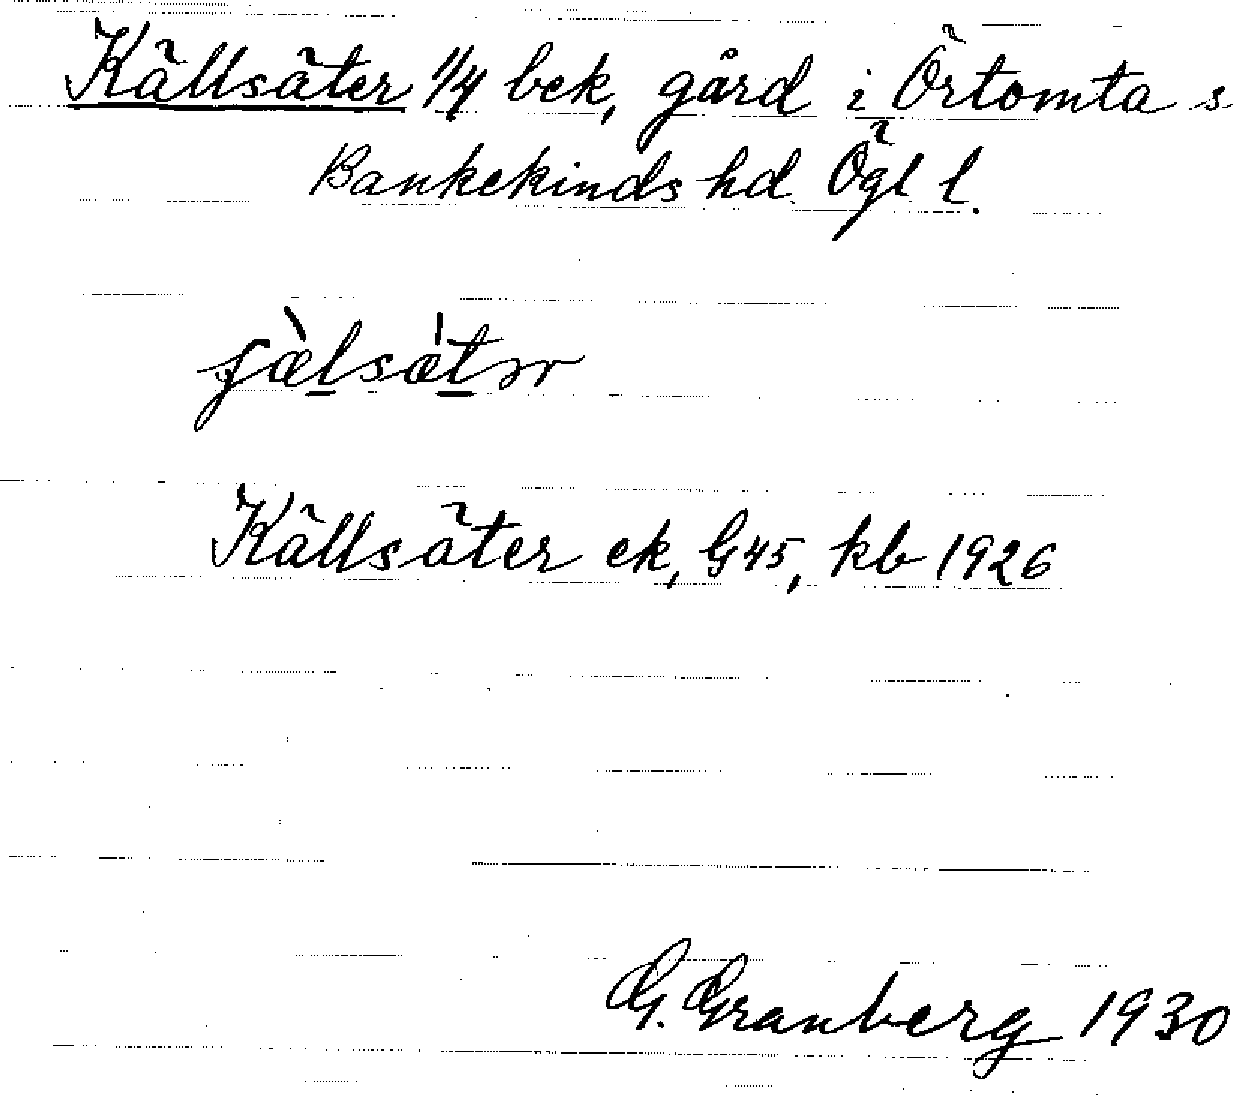 Källsäter 1/4 bek, gård i Örtomta s
Bankekinds hd. Ögl l.
Källsäter ek, G45, kb 1926
G. Granberg 1930